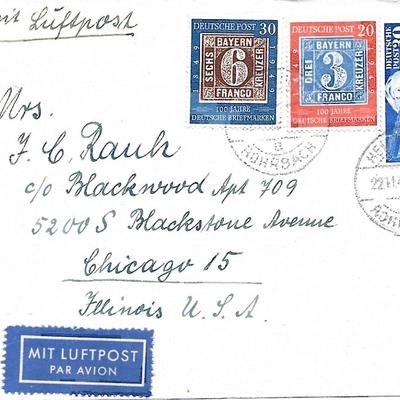 mit Luftpost
DEUTSCHE POST 30
BAYERN
SECHS 6 KREUZER
FRANCO
1849 1949
100 JAHRE
DEUTSCHE BRIEFMARKEN
DEUTSCHE POST 20
BAYERN
DREI 3 KREUZER
FRANCO
1849 1949
100 JAHRE
DEUTSCHE BRIEFMARKEN
DEUTSCHE POST
a
ROHRBACH
22.11.4
Mrs.
F. C. Rauh
c/o Blackwood Apt 709
5200 S Blackstone Avenue
Chicago 15
Illinois U. S. A.
MIT LUFTPOST
PAR AVION